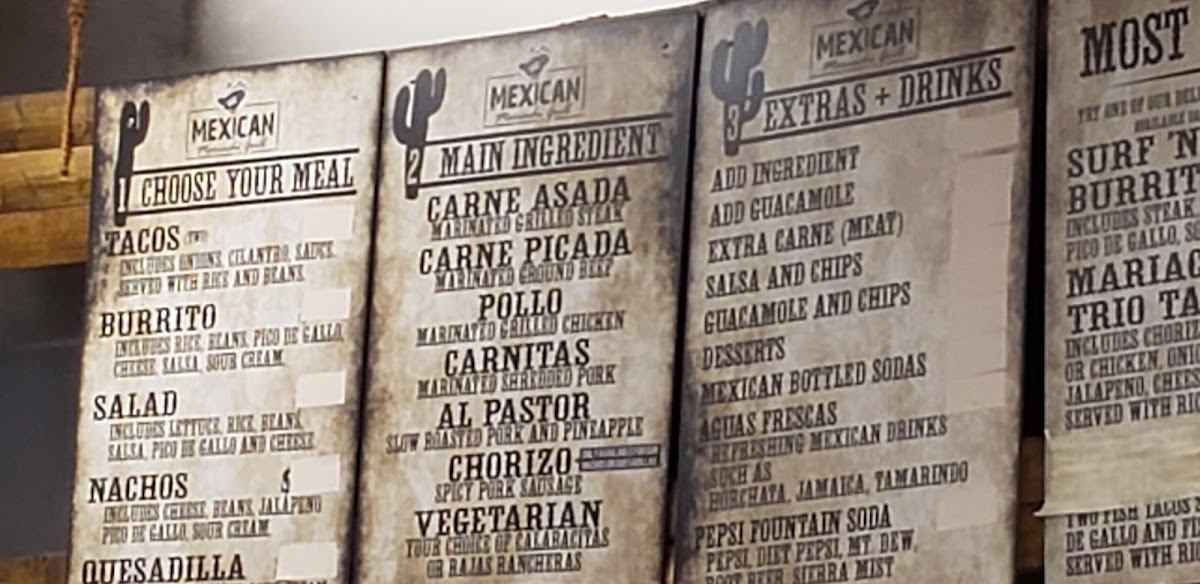 MEXICAN
1 CHOOSE YOUR MEAL
TACOS (TWO)
INCLUDES ONIONS, CILANTRO, SAUCE.
SERVED WITH RICE AND BEANS.
BURRITO
INCLUDES RICE, BEANS, PICO DE GALLO,
CHEESE, SALSA, SOUR CREAM.
SALAD
INCLUDES LETTUCE, RICE, BEANS,
SALSA, PICO DE GALLO AND CHEESE.
NACHOS $
INCLUDES CHEESE, BEANS, JALAPENO
PICO DE GALLO, SOUR CREAM.
QUESADILLA
MEXICAN
2 MAIN INGREDIENT
CARNE ASADA
MARINATED GRILLED STEAK
CARNE PICADA
MARINATED GROUND BEEF
POLLO
MARINATED GRILLED CHICKEN
CARNITAS
MARINATED SHREDDED PORK
AL PASTOR
SLOW ROASTED PORK AND PINEAPPLE
CHORIZO
SPICY PORK SAUSAGE
VEGETARIAN
YOUR CHOICE OF CALABACITAS
OR RAJAS RANCHERAS
MEXICAN
3 EXTRAS + DRINKS
ADD INGREDIENT
ADD GUACAMOLE
EXTRA CARNE (MEAT)
SALSA AND CHIPS
GUACAMOLE AND CHIPS
DESSERTS
MEXICAN BOTTLED SODAS
AGUAS FRESCAS
REFRESHING MEXICAN DRINKS
SUCH AS
HORCHATA, JAMAICA, TAMARINDO
PEPSI FOUNTAIN SODA
PEPSI, DIET PEPSI, MT. DEW,
ROOT BEER, SIERRA MIST
MOST
TRY ONE OF OUR
SURF 'N
BURRIT
INCLUDES STEAK
PICO DE GALLO, S
MARIAC
TRIO TA
INCLUDES CHORI
OR CHICKEN, ONI
JALAPENO, CHEES
SERVED WITH RI
TWO FISH TACOS
DE GALLO AND
SERVED WITH RI